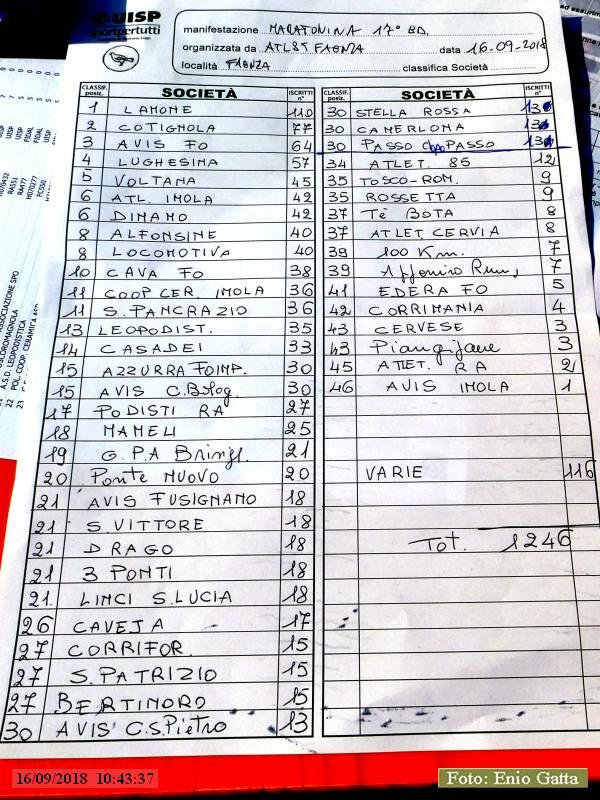 UISP
sportpertutti
manifestazione MARATONINA 17° BD.
organizzata da ATL 85 FAENZA data 16.09.2018
località FAENZA classifica Società
CLASSIF. posiz. SOCIETÀ ISCRITTI n°
1 LAMONE 110
2 COTIGNOLA 77
3 AVIS FO 64
4 LUGHESINA 57
5 VOLTANA 45
6 ATL. IMOLA 42
6 DINAMO 42
8 ALFONSINE 40
8 LOCOMOTIVA 40
10 CAVA FO 38
11 COOP CER. IMOLA 36
11 S. PANCRAZIO 36
13 LEOPODIST. 35
14 CASADEI 33
15 AZZURRA FOIMP. 30
15 AVIS C.Bolog. 30
17 PODISTI RA 27
18 MAMELI 25
19 G.P.A Bringh. 21
20 Ponte NUOVO 20
21 AVIS FUSIGNANO 18
21 S. VITTORE 18
21 DRAGO 18
21 3 PONTI 18
21. LINCI S. LUCIA 18
26 CAVEJA 17
27 CORRIFOR. 15
27 S. PATRIZIO 15
27 BERTINORO 15
30 AVIS C.S.Pietro 13
CLASSIF. posiz. SOCIETÀ ISCRITTI n°
30 STELLA ROSSA 13
30 CAMERLONA 13
30 PASSO PASSO 13
34 ATLET. 85 12
35 TOSCO-ROM. 9
35 ROSSETTA 9
37 TE BOTA 8
37 ATLET. CERVIA 8
39 100 Km. 7
39 Run, 7
41 EDERA FO 5
42 CORRIMANIA 4
43 CERVESE 3
43 Piangipane 3
45 ATLET. RA 2
46 AVIS IMOLA 1
VARIE 116
Tot. 1246
ASSOCIAZIONE SPO
A.S.D. LEOPODISTICA
POL. COOP. CERAMICA
16/09/2018 10:43:37
Foto: Enio Gatta